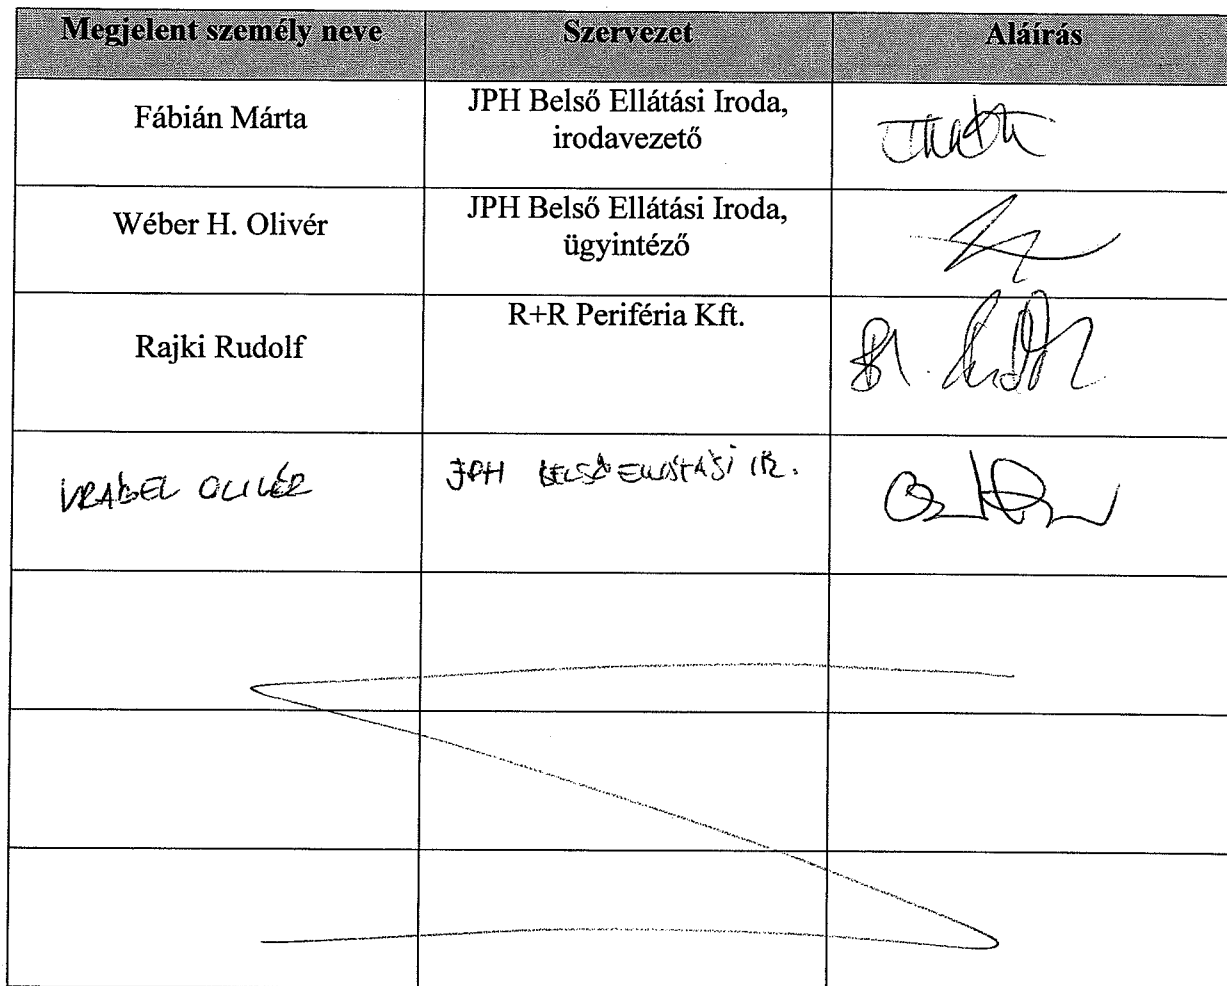 Megjelent személy neve Szervezet Aláírás
Fábián Márta JPH Belső Ellátási Iroda,
irodavezető
Wéber H. Olivér JPH Belső Ellátási Iroda,
ügyintéző
Rajki Rudolf R+R Periféria Kft.
VRABEL OLIVÉR JPH BELSŐ ELLÁTÁSI IR.